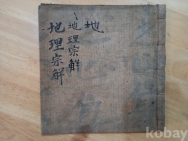 地
地理宗解
地理宗解
kobay